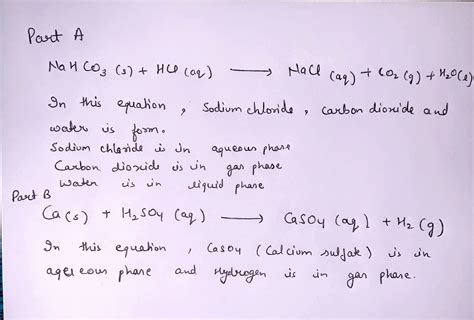 Part A
NaHCO3 (s) + HCl (aq) ⟶ NaCl (aq) + CO2 (g) + H2O(l)
In this equation, Sodium chloride, carbon dioxide and
water is form.
Sodium chloride is in aqueous phase
Carbon dioxide is in gas phase
Water is in liquid phase
Part B
Ca(s) + H2SO4 (aq) ⟶ CaSO4 (aq) + H2 (g)
In this equation, CaSO4 (Calcium sulfate) is in
aqueous phane and Hydrogen is in gas phase.